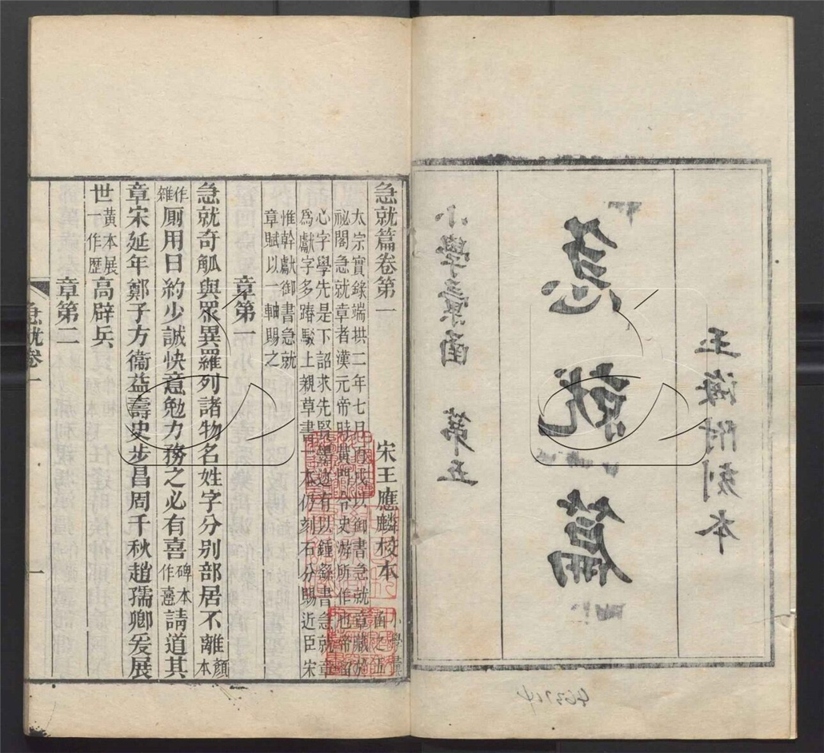 玉海附刻本
急就篇
小學彙函 第五
急就篇卷第一 宋王應麟校本
太宗實錄端拱二年七月 戌以御書急就章藏於
祕閣急就章者漢元帝時黃門令史游所作也帝留
心字學先是下詔求先賢墨迹有以鍾繇書急就章
爲獻字多踳駮上親草書一本仍刻石分賜近臣宋
惟幹獻御書急就
章賦以一軸賜之
章第一
急就奇觚與眾異羅列諸物名姓字分别部居不離顏本
作雜厠用日約少誠快意勉力務之必有喜碑本作憙請道其
章宋延年鄭子方衞益壽史步昌周千秋趙孺卿爰展
世黃本展一作歷高辟兵
章第二
急就卷一 一